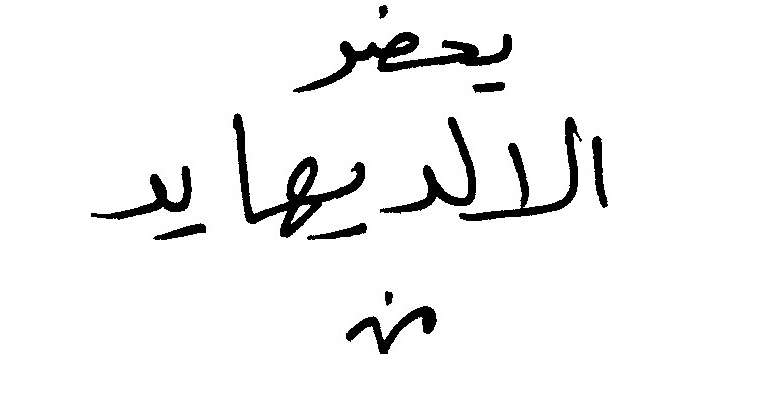 يحضر
الالديهايد
من